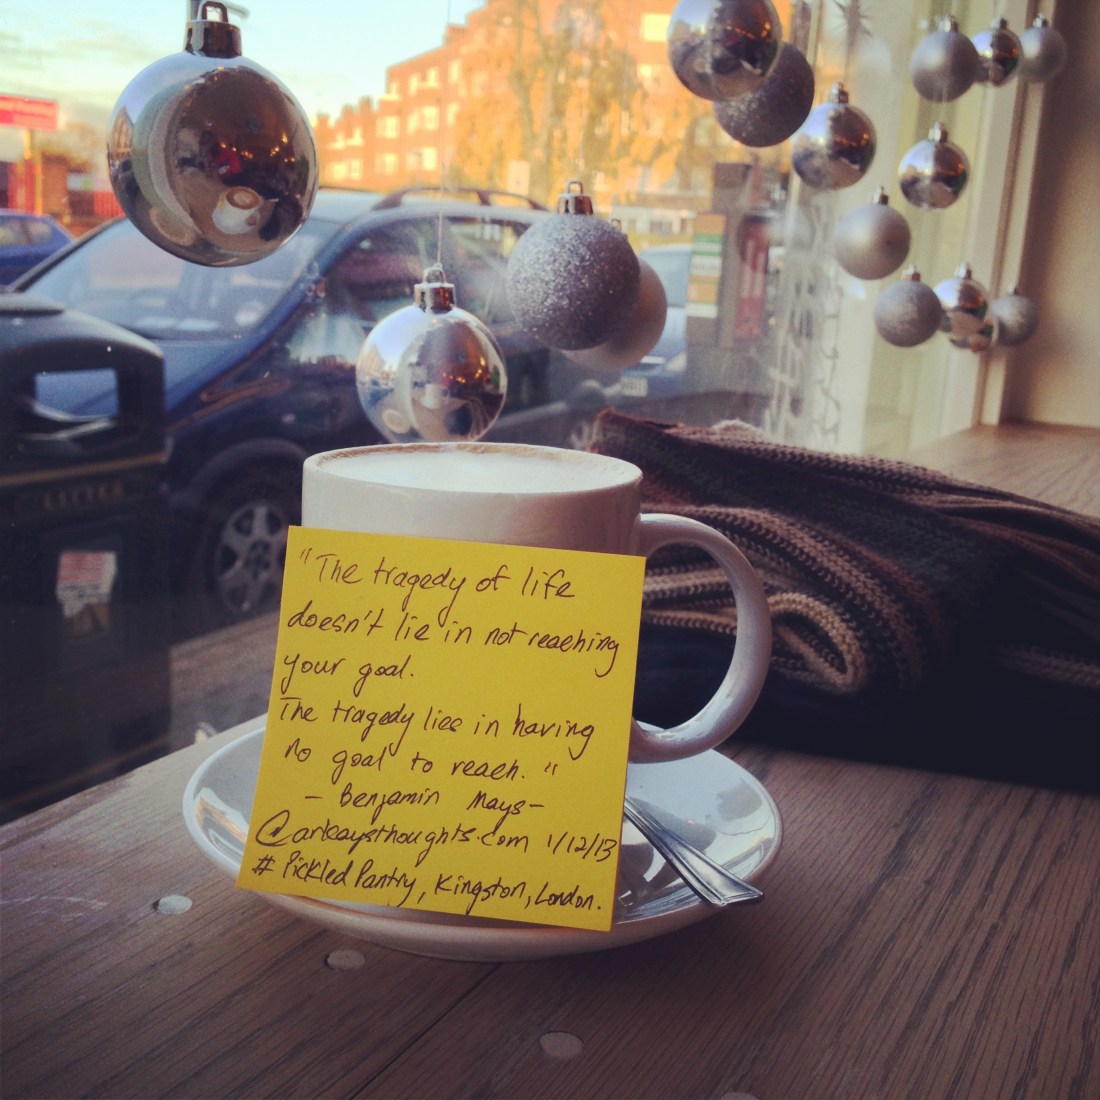 LITTER
"The tragedy of life
doesn't lie in not reaching
your goal.
The tragedy lies in having
no goal to reach."
- Benjamin Mays -
@arkaysthoughts.com 1/12/13
# Pickled Pantry, Kingston, London.